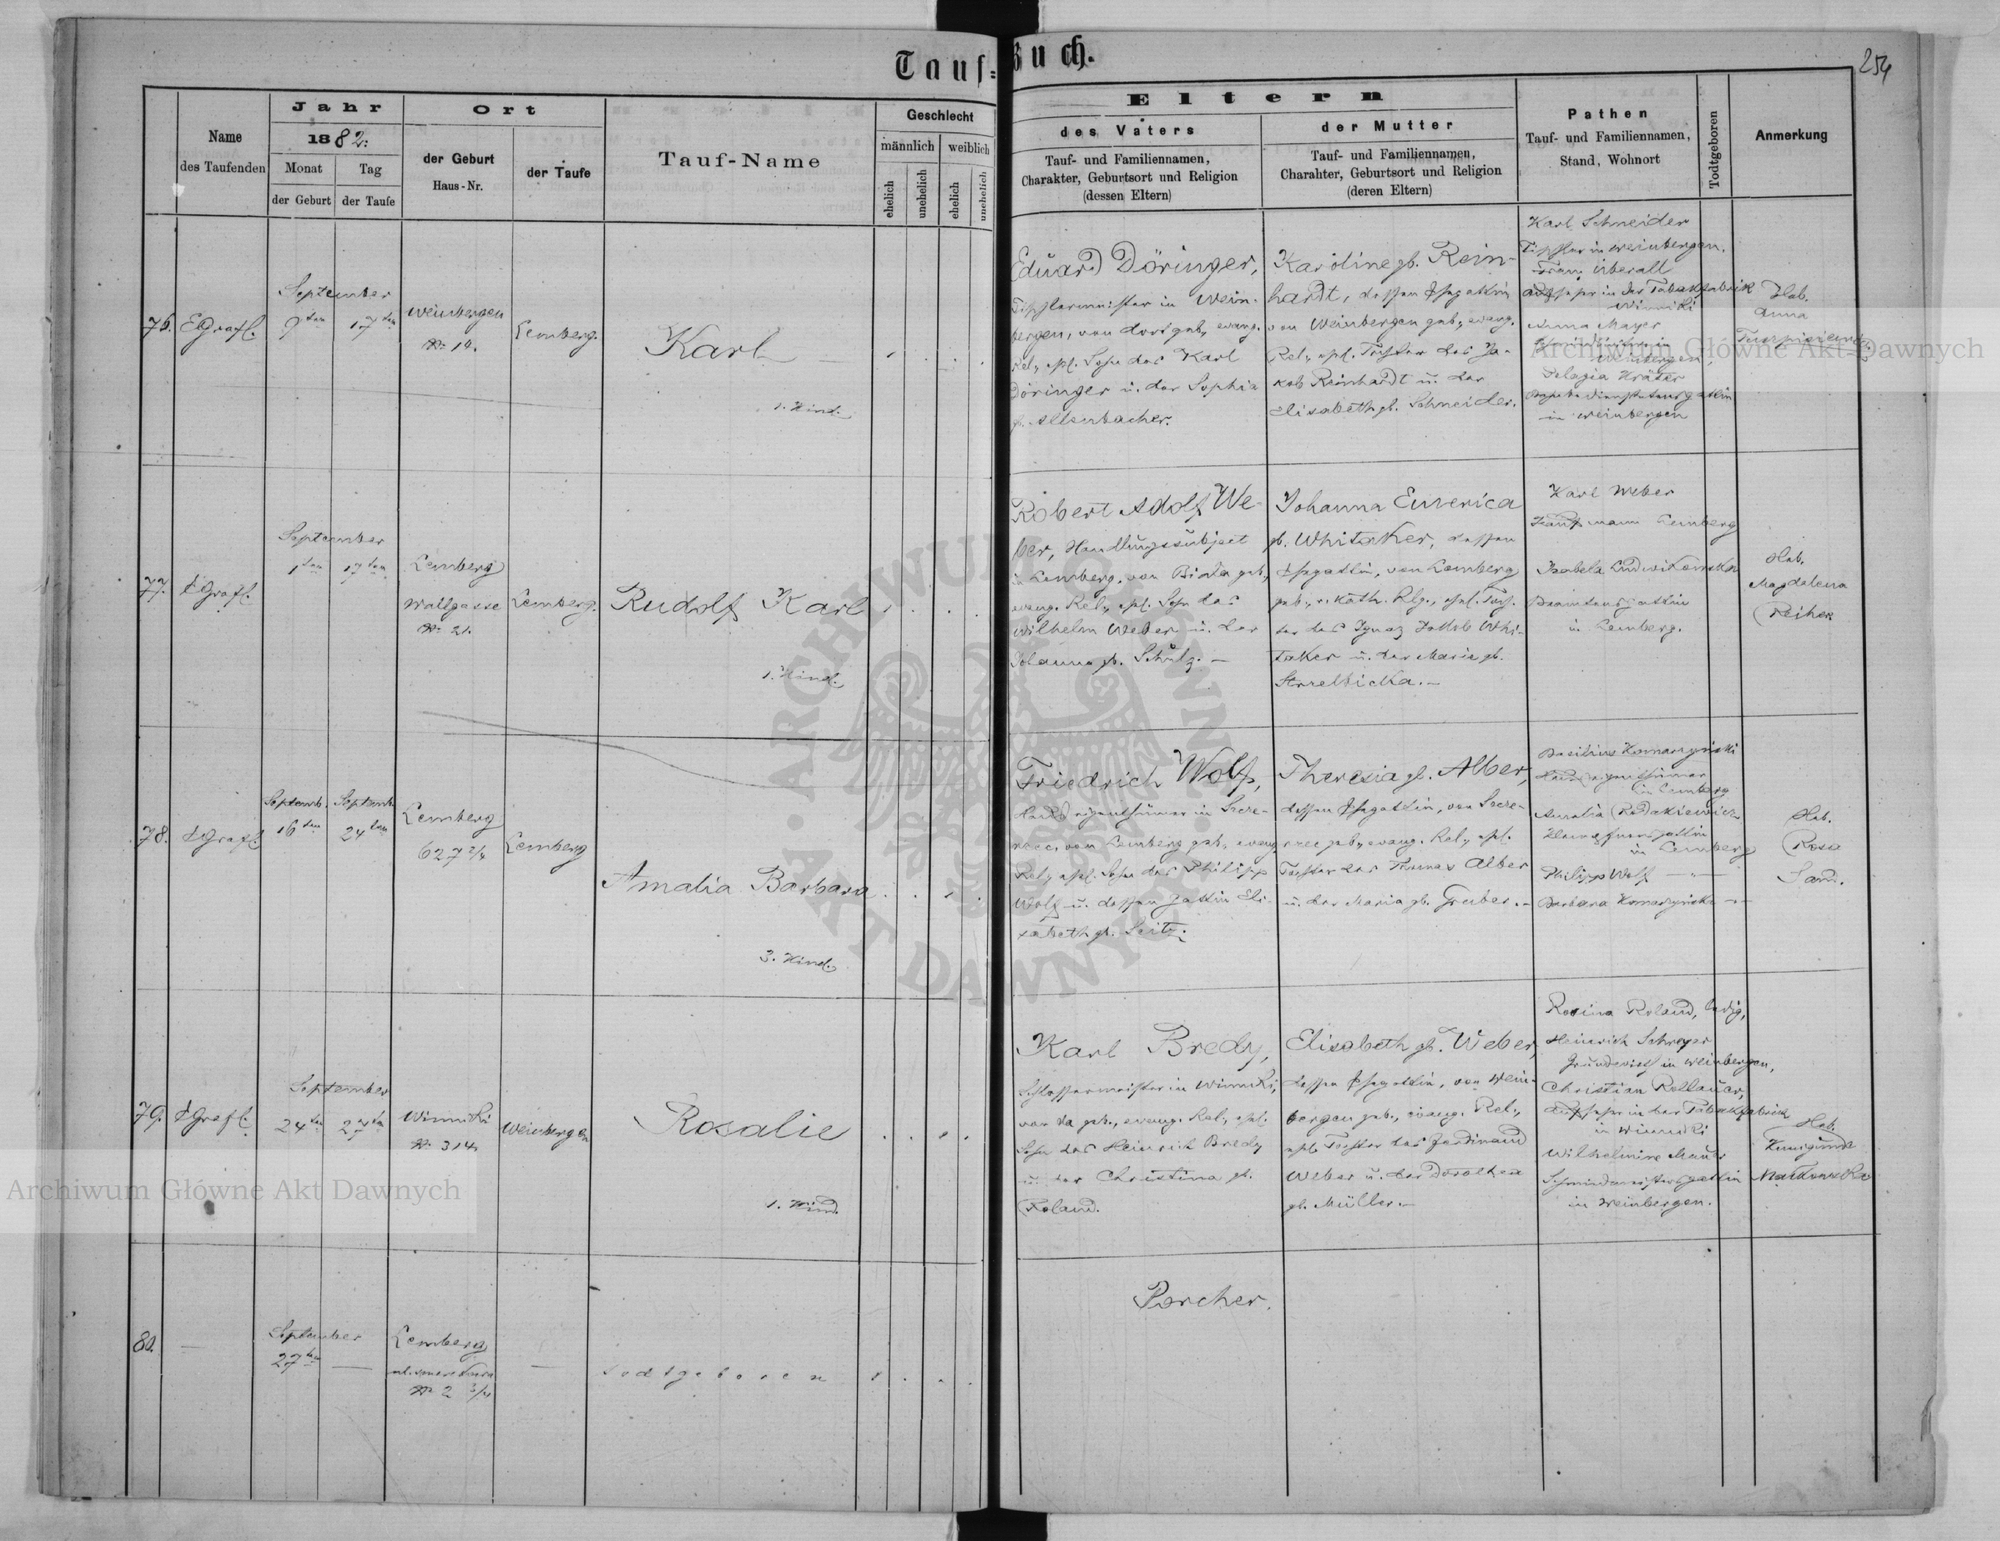 Tauf-Buch.
254
Name
des Taufenden
Jahr
1882.
Monat
der Geburt
Tag
der Taufe
Ort
der Geburt
Haus-Nr.
der Taufe
Tauf-Name
Geschlecht
männlich
weiblich
ehelich
unehelich
ehelich
unehelich
Eltern
des Vaters
Tauf- und Familiennamen,
Charakter, Geburtsort und Religion
(dessen Eltern)
der Mutter
Tauf- und Familiennamen,
Charakter, Geburtsort und Religion
(deren Eltern)
Pathen
Tauf- und Familiennamen,
Stand, Wohnort
Todtgeboren
Anmerkung
76.
September
9ten
17ten
Weinbergen
Nr. 14.
Lemberg.
Karl
1. Kind.
Eduard Döringer,
Tischlermeister in Wein-
bergen, von dort geb., evang.
Rel., ehl. Sohn des Karl
Döringer u. der Sophia
Karoline gb. Rein-
hardt, dessen Ehegattin
von Weinbergen geb., evang.
Rel., ehl. Tochter des Ja-
kob Reinhardt u. der
Elisabeth gb. Schneider.
Karl Schneider
Tischler in Weinbergen.
Franz Überall
Aufseher in der Tabakfabrik
Winniki
Anna Mayer
in Weinbergen
Heb.
Anna
77.
September
1ten
17ten
Lemberg
Wallgasse
Nr. 21.
Lemberg.
Rudolf Karl
1. Kind.
Robert Adolf We-
ber, Handlungssubject
in Lemberg, von Biala geb.,
evang. Rel., ehl. Sohn des
Wilhelm Weber u. der
Johanna gb. Schulz. –
Johanna Emerica
gb. Whitaker, dessen
Ehegattin, von Lemberg
geb., r. kath. Rlg., ehl. Toch-
ter des Ignaz Jakob Whi-
taker u. der Maria gb.
Strzelbicka. –
Karl Weber
Kaufmann Lemberg
Isabela Ludwikowska
Beamtensgattin
in Lemberg.
Heb.
Magdalena
Reiher
78.
Septemb.
16ten
Septemb.
24ten
Lemberg
627 2/4
Lemberg
Amalia Barbara
3. Kind.
Friedrich Wolf,
Hauseigenthümer in
von Lemberg geb., evang.
Rel., ehel. Sohn des Philipp
Wolf u. dessen Gattin Eli-
sabeth gb. Seitz.
Theresia gb. Alber,
dessen Ehegattin, von
geb., evang. Rel., ehel.
Tochter des Thomas Alber
u. der Maria gb. Gruber. –
Hauseigenthümer
in Lemberg
Amalia
in Lemberg
Philipp Wolf
Barbara
Heb.
Rosa
Sand.
79.
September
24ten
27ten
Winniki
Nr. 314
Weinbergen
Rosalie
1. Kind.
Karl Bredy,
Schlossermeister in Winniki,
von da geb., evang. Rel., ehl.
Sohn des Heinrich Bredy
u. der Christina gb.
Roland.
Elisabeth gb. Weber,
dessen Ehegattin, von Wein-
bergen geb., evang. Rel.,
ehl. Tochter des Ferdinand
Weber u. der Dorothea
gb. Müller. –
Rosina Roland, ledig,
Heinrich Schreyer
Grundwirth in Weinbergen,
Christian Rollauer,
Aufseher in der Tabakfabrik
in Winniki
Wilhelmine Mauer
Schmiedmeistersgattin
in Weinbergen.
Heb.
Kunigunde
80.
September
27ten
Lemberg
Nr. 2 3/4
todtgeboren
Porcher.
ARCHIWUM GŁÓWNE AKT DAWNYCH
Archiwum Główne Akt Dawnych
Archiwum Główne Akt Dawnych